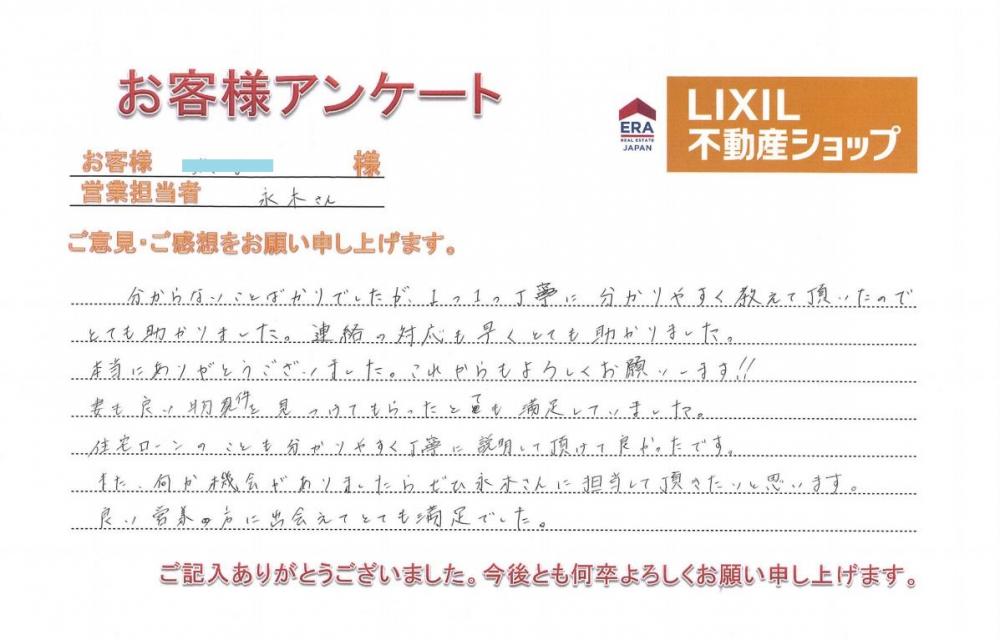 お客様アンケート
ERA
REAL ESTATE
JAPAN
LIXIL
不動産ショップ
お客様 様
営業担当者 永木さん
ご意見・ご感想をお願い申し上げます。
分からないことばかりでしたが、1つ1つ丁寧に分かりやすく教えて頂いたので
とても助かりました。連絡の対応も早くとても助かりました。
本当にありがとうございました。これからもよろしくお願いします!!
妻も良い物件を見つけてもらったととても満足していました。
住宅ローンのことも分かりやすく丁寧に説明して頂けて良かったです。
また、何か機会がありましたらぜひ永木さんに担当して頂きたいと思います。
良い営業の方に出会えてとても満足でした。
ご記入ありがとうございました。今後とも何卒よろしくお願い申し上げます。